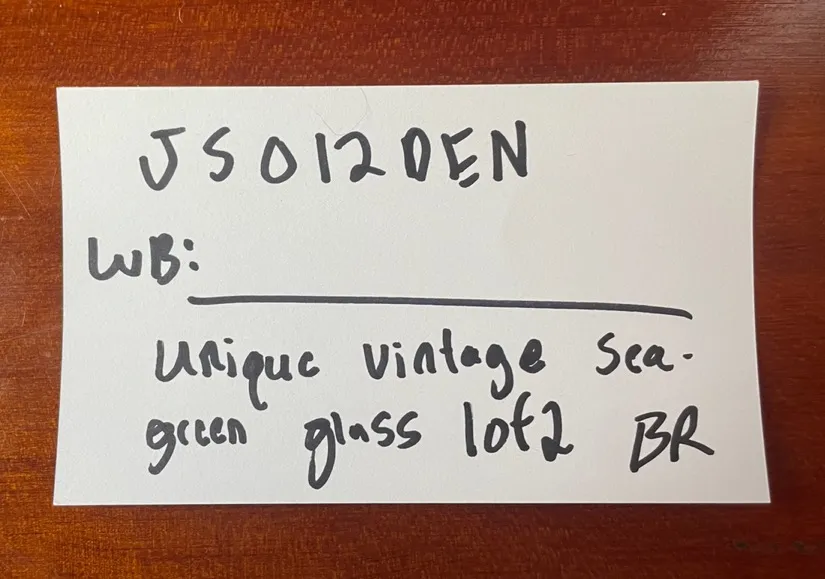 JS012DEN
WB:
unique vintage sea-
green glass 1of2 BR